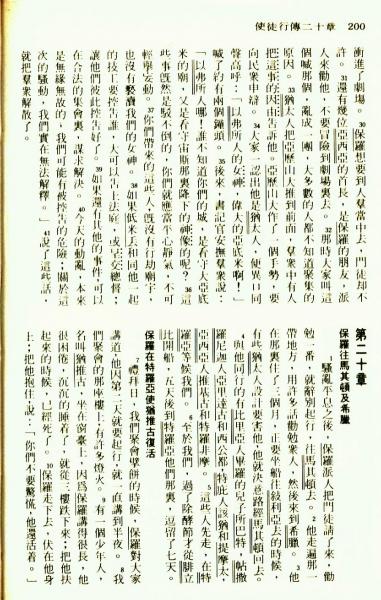 使徒行傳二十章 200
衝進了劇場。30保羅想要到人羣當中去,門徒卻不
許。31還有幾位亞西亞的首長,是保羅的朋友,派
人來勸他,不要冒險到劇場裏去。32那時大家叫這
個喊那個,亂成一團,大多數的人都不知道聚集的
原因。33猶太人把亞歷山大推到前面,羣眾中有人
把這事的因由告訴他。亞歷山大作了一個手勢,要
向民眾申辯。34大家一認出他是猶太人,便異口同
聲高呼:「以弗所人的女神,偉大的亞底米啊!」
喊了約有兩個鐘頭。35後來,書記官安撫羣眾說:
「以弗所人哪!誰不知道你們的城,是看守大亞底
米的廟,又是看守宙斯那裏降下的神像的呢?36這
些事旣然是駁不倒的,你們就應當平心靜氣,不可
輕舉妄動。37你們帶來的這些人,旣沒有行劫廟宇,
也沒有褻瀆我們的女神。38如果低米丟和同他一起
的技工要控告誰,大可以告上法庭,或呈交總督;
讓他們彼此控告好了。39如果還有其他的事件,可以
在合法的集會裏,謀求解決。40今天的動亂,本來
是無緣無故的,我們可能有被控告的危險;關於這
次的騷動,我們實在無法解釋。」41說了這些話,
就把羣眾解散了。
第二十章
保羅往馬其頓及希臘
1騷亂平息之後,保羅派人把門徒請了來,勸
勉一番,就辭別起行,往馬其頓去。2他走遍那一
帶地方,用許多話勸勉眾人,然後來到希臘。3他
在那裏住了三個月,正要坐船往敍利亞去的時候,
有些猶太人設計要害他,他就決意路經馬其頓回去。
4與他同行的有比里亞人畢羅的兒子所巴特,帖撒
羅迦人亞里達古和西公都,特庇人該猶和提摩太,
亞西亞人推基古和特羅非摩。5這些人先走,在特
羅亞等候我們。6至於我們,過了除酵節才從腓立
比開船,五天後到特羅亞他們那裏,逗留了七天。
保羅在特羅亞使猶推古復活
7禮拜日,我們聚會擘餅的時候,保羅對大家
講道,他因第二天就要起行,就一直講到半夜。8我
們聚會的那座樓上,有許多燈火。9有一個少年人,
名叫猶推古,坐在窗臺上,因爲保羅講得很長,他
很困倦,沉沉的睡着了,就從三樓跌下來;把他扶
起來的時候,已經死了。10保羅走下去,伏在他身
上,把他抱住,說:「你們不要驚慌,他還活着。」